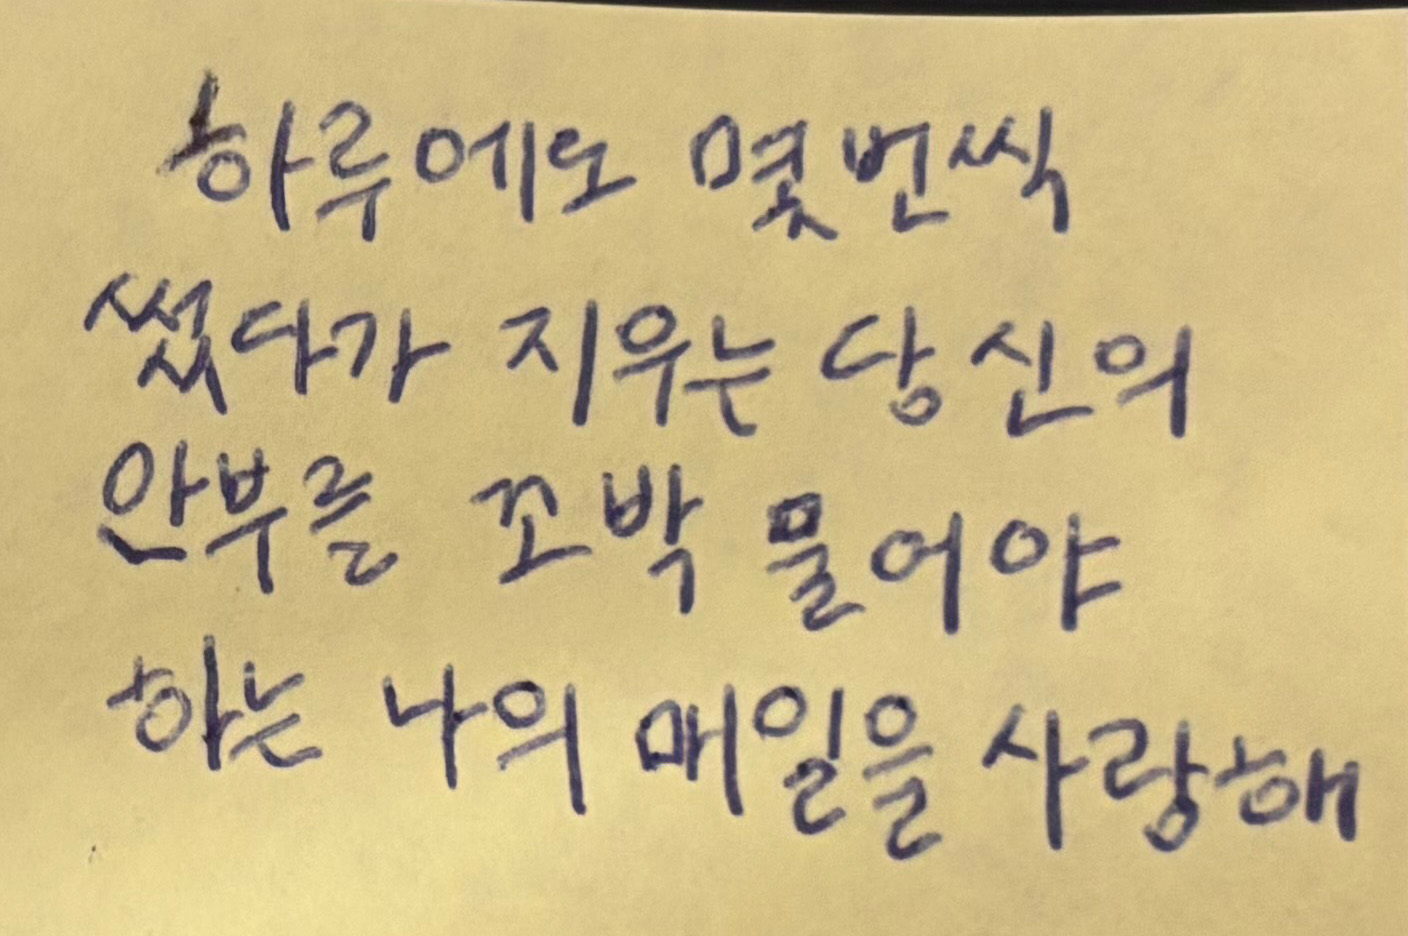 하루에도 몇번씩
썼다가 지우는 당신의
안부를 꼬박 물어야
하는 나의 매일을 사랑해